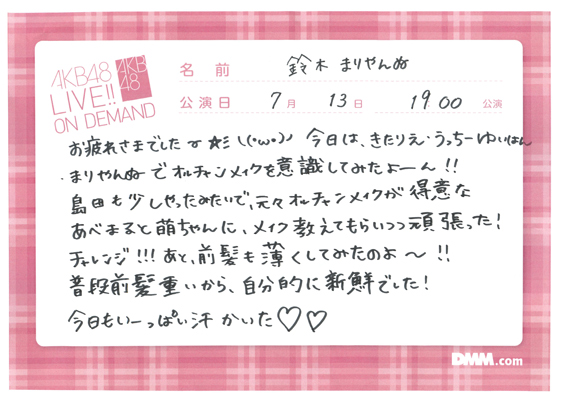 AKB48
LIVE!!
ON DEMAND
AKB
48
名 前 鈴木 まりやんぬ
公演日 7月 13日 19:00 公演
お疲れさまでした 今日は、きたりえ・うっちー・ゆいはん
・まりやんぬ でオルチャンメイクを意識してみたよーん!!
島田も少しやったみたいで、元々オルチャンメイクが得意な
あべまると萌ちゃんに、メイク教えてもらいつつ頑張った!
チャレンジ!!! あと、前髪も薄くしてみたのよ〜!!
普段前髪重いから、自分的に新鮮でした!
今日もいーっぱい汗かいた♡♡
DMM.com